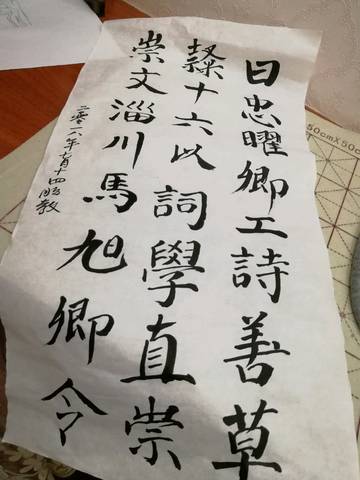 日忠曜卿工詩善草
隸十六以詞學直崇
崇文淄川馬旭卿令
二零一八年七月十四
50cmX50